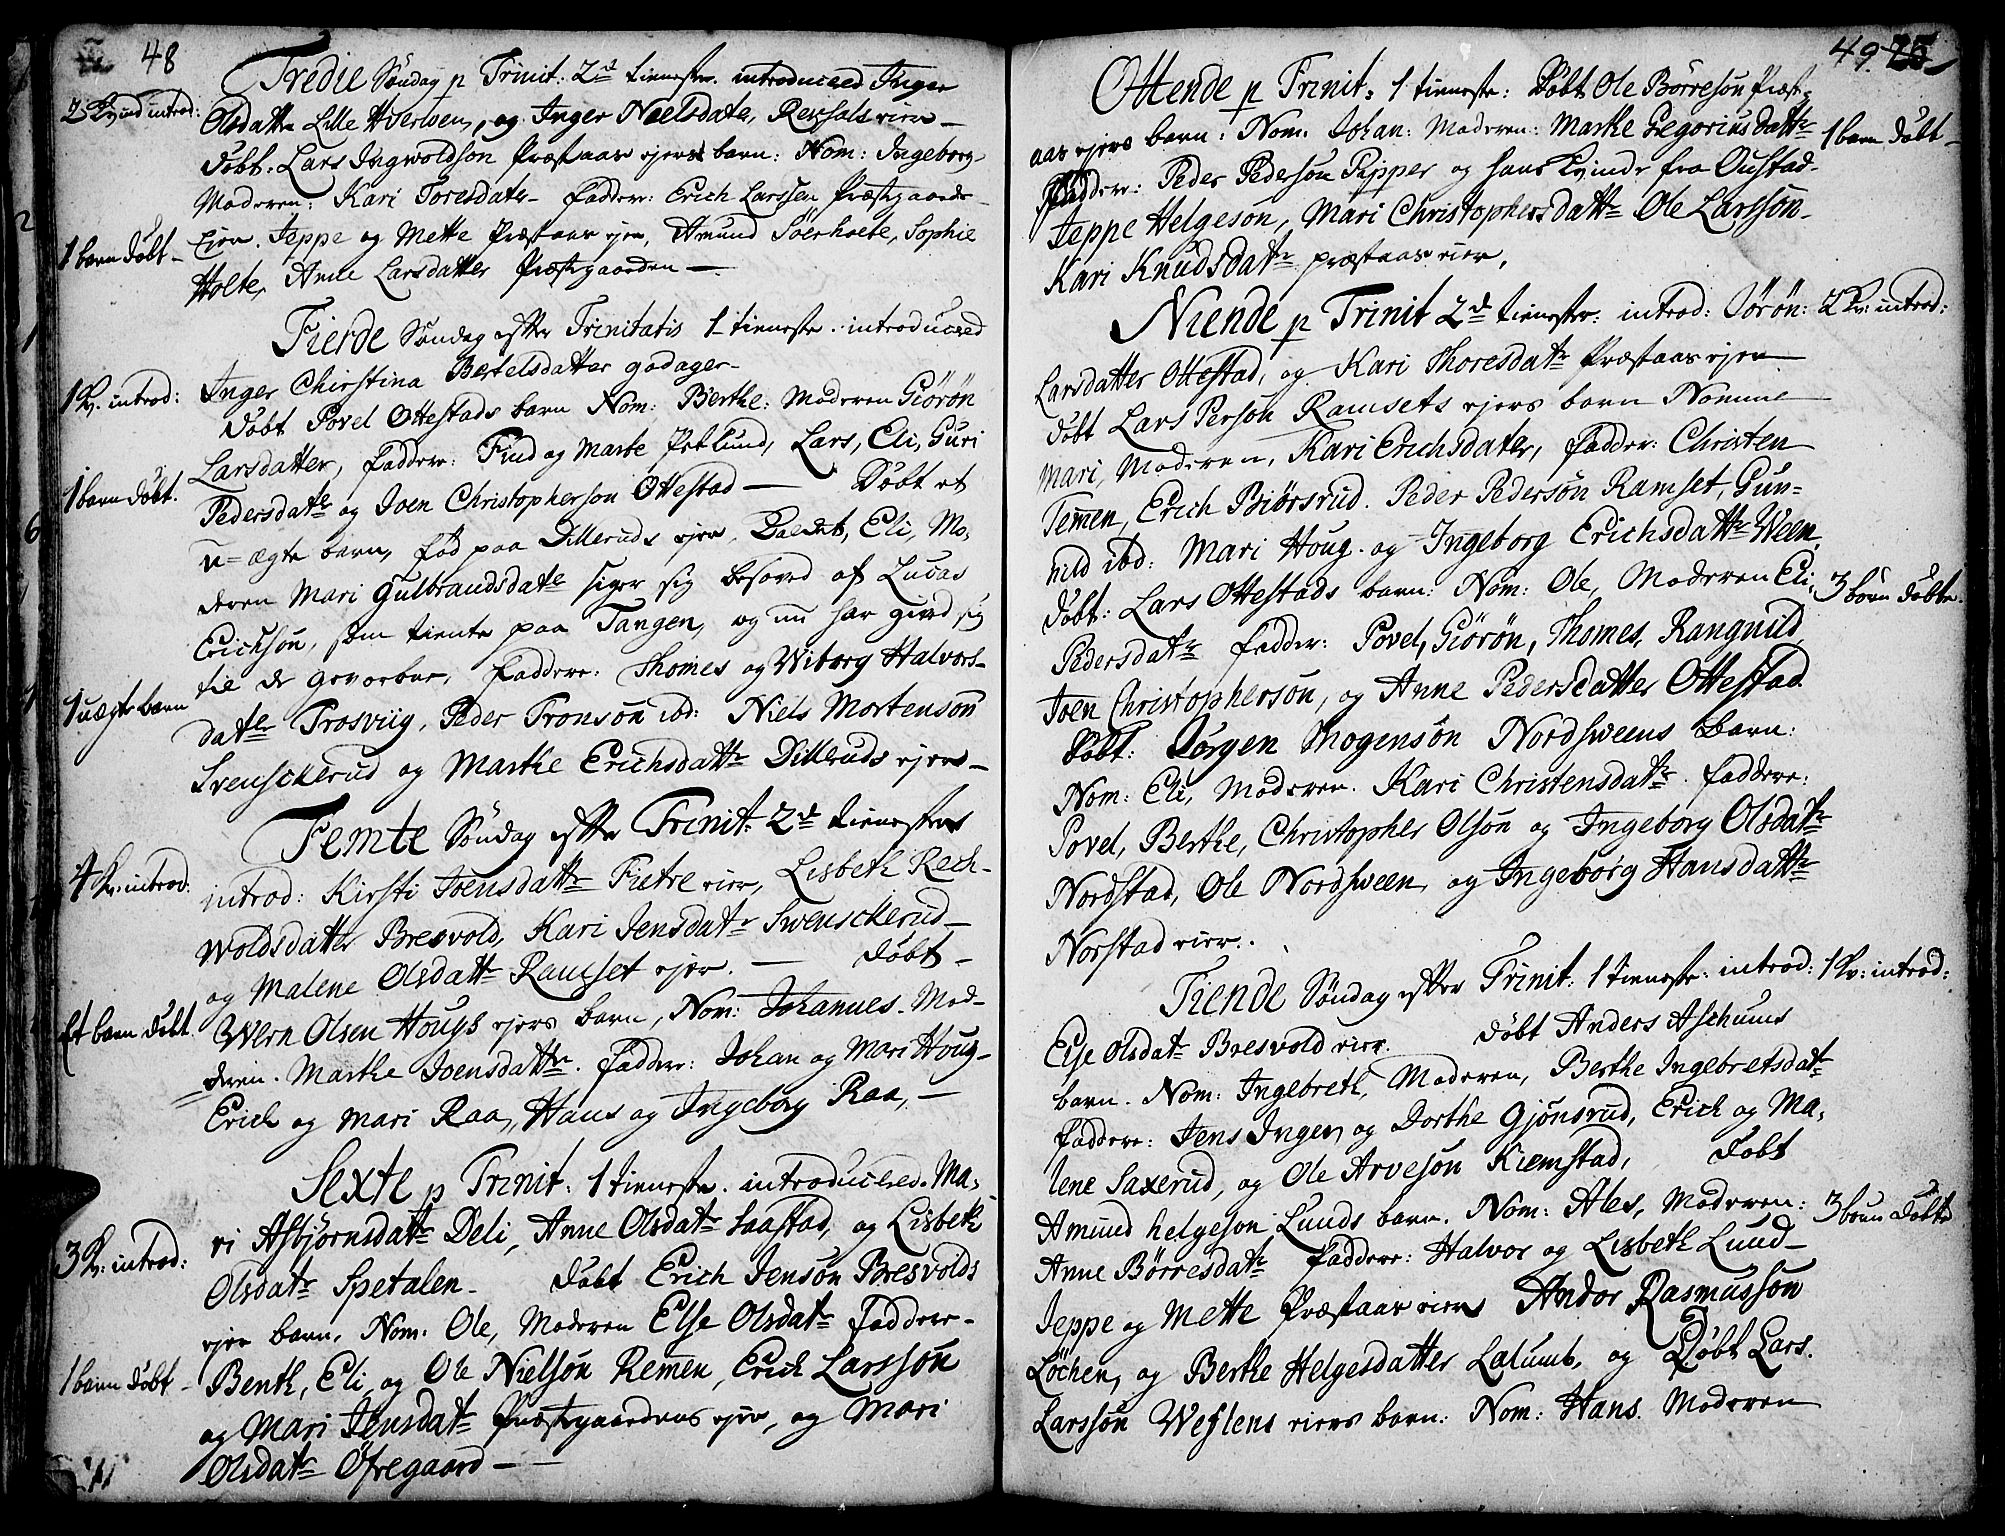 48
Tredie Søndag p Trinit: 2d tieneste. introduceed Inger
2 Kvind introd:
Olsdatter Lille Hverlven, og Inger Neelsdater, Revsals eier
Døbt. Lars Ingwoldsøn Præstaas ejers barn: Nom: Ingeborg
Moderen: Kari Toresdatr. faddere: Erich Larssen Præstgaards-
1 barn døbt
Eien. Jeppe og Mette Præstaas ejen, Amund Søerholte, Sophie
Holte, Anne Larsdatter Præstgaarden
Fierde Søndag efter Trinitatis 1 tieneste. introduceed
1 Kv. introd:
Inger Chirstina Bertelsdatter godager
Døbt Povel Ottestads barn Nom: Berthe: Moderen Giørøn
Larsdatter, faddere: Find og Marte Petlund, Lars, Eli, Guri
1 barn døbt.
Pedersdatr og Joen Christophersøn Ottestad Døbt et
u=ægte barn, fød paa Dilleruds ejer, Eli, Mo,
deren Mari Gulbrandsdatr siger sig besoved af Lucas
Erichsøn, som tiente paa Tangen, og nu har givid sig
til de gevorbne, faddere: Thomes og Wiborg Halvors-
1 uægte barn
datr Frosviig, Peder Tronsøn ibd: Niels Mortensøn
Svensckerud og Marthe Erichsdattr Dilleruds ejers
Femte Søndag efter Trinit. 2d tieneste
4 Kv. introd:
introd: Kirsti Joensdattr Fietre eier, Lisbeth Rech-
woldsdatter Bresvold, Kari Jensdatr Swensckerud
og Malene Olsdattr Ramset ejer. Døbt
Et barn døbt.
Wern Olsen Hougs ejers barn, Nom: Johannes. Mod-
deren. Marthe Joensdattr. faddere: Johan og Mari Houg
Erich og Mari Raa, Hans og Ingeborg Raa,
Sexte p Trinit: 1 tieneste. introduceed. Ma,
3 Kv. introd:
ri Asbjørnsdatr Deli, Anne Olsdatr Saastad, og Lisbeth
Olsdatr Spetalen. Døbt Erich Jensøn Bresvolds
ejer barn, Nom: Ole, Moderen Else Olsdatr faddere
1 barn døbt
Benth, Eli og Ole Nielsøn Remen, Erich Larssøn
og Mari Jensdatr Præstgaardens ejer, og Mari
Olsdatr Øfregaard
49. 25
Ottende p Trinit: 1 tieneste: Døbt Ole Børresøn Præst-
aas ejers barn: Nom: Johan: Moderen: Marthe Gregoriusdattr
1 barn døbt
Faddere: Peder Pedersøn Pipper og hans Kvinde fra Oustad
Jeppe Helgesøn, Mari Christophersdattr Ole Larssøn
Kari Knudsdatr præstaas eier,
Niende p Trinit 2d tieneste: introd: Jørøn:
2 Kv: introd:
Larsdatter Ottestad, og Kari Thoresdatr Præstaas ejen
døbt Lars Persøn Ramsets ejers barn Nomine
Mari, Moderen, Kari Erichsdater, Fadder: Christen
Temen, Erich Biørsrud. Peder Pedersøn Ramset, Gun=
hild ibd: Mari Houg. og Ingeborg Erichsdattr Ween
Døbt: Lars Ottestads barn: Nom: Ole, Moderen Eli,
3 børn døbte.
Pedersdatr fadder: Povel, Giørøn, Thomes, Rangnild
Joen Christophersøn, og Anne Pedersdatter Ottestad.
Døbt: Jørgen Mogensøn Nordsweens Barn:
Nom: Eli, Moderen. Kari Christensdatr. faddere:
Povel, Berthe, Christopher Olsøn og Ingeborg Olsdatr
Nordstad, Ole Nordsween, og Ingeborg Hansdattr
Norstad eier.
Tiende Søndag efter Trinit: 1 tieneste. introd:
1 Kv: introd:
Else Olsdatr Bresvold eier. Døbt Anders Aschums
barn. Nom: Ingebreth, Moderen, Berthe Ingebretsdatr
faddere: Jens Inger og Dorthe Gjønsrud, Erich og Ma,
lene Saxerud, og Ole Arvesøn Kiemstad, Døbt
Amund helgesøn Lunds barn. Nom: Ales, Moderen:
3 børn døbte
Anne Børresdatr faddere: Halvor og Lisbeth Lund
Jeppe og Mette Præstaas eiere Andor Rasmussøn
Løchen, og Berthe Helgesdatter Lalumb, og Døbt Lars.
Larssøn Weflens eiers barn: Nom: Hans. Moderen